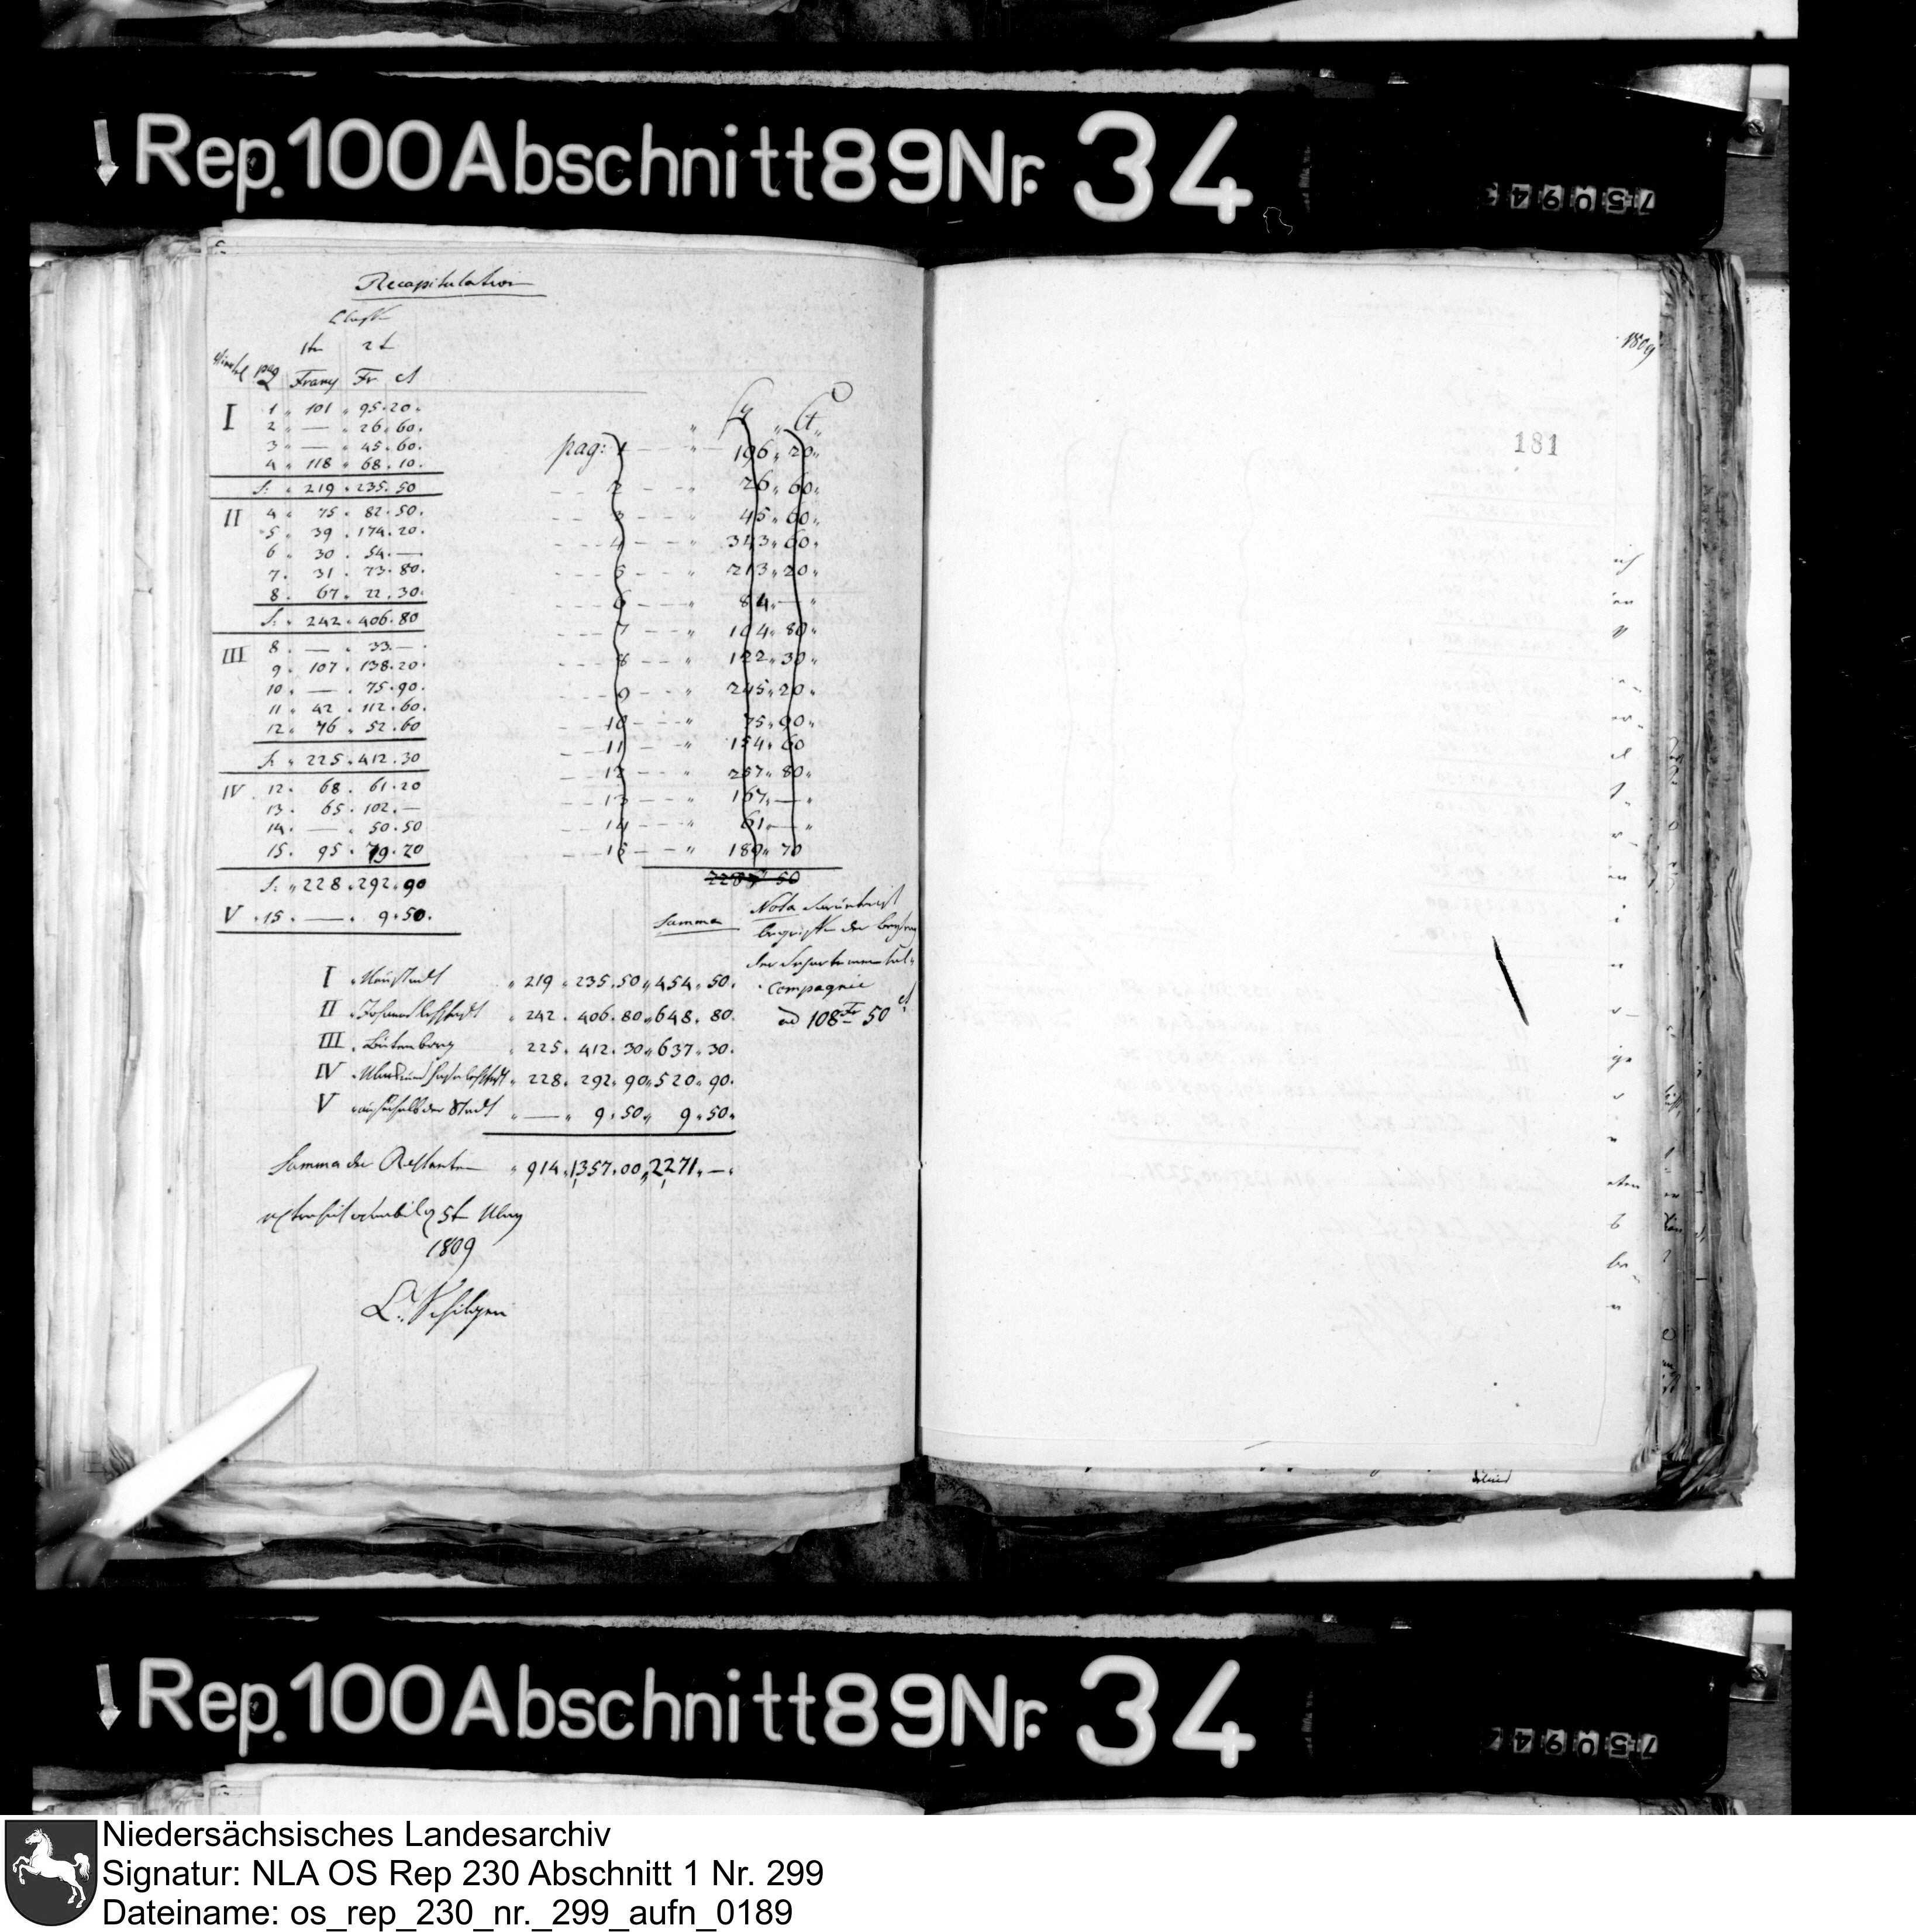 Rep. 100 Abschnitt 89 Nr. 34
75094
Recapitulation
Classe
1te 2te
pag Francs Fr. ct
I 1 " 101 " 95. 20.
2 " — " 26. 60.
3 " — " 45. 60.
4 " 118 " 68. 10.
S: " 219 . 235. 50
II 4 " 75 " 82. 50.
5 " 39 . 174. 20.
6 " 30 . 54. —
7. 31 . 73. 80.
8. 67 . 22. 30.
S: " 242 . 406. 80
III 8. — . 33. —
9. 107 . 138. 20.
10. — . 75. 90.
11. 42 . 112. 60.
12. 76 . 52. 60
S: " 225 . 412. 30
IV 12. 68. 61. 20
13. 65. 102. —
14. — . 50. 50
15. 95 . 79. 20
S: " 228 . 292. 90
V . 15. — . 9. 50.
Ct
pag: 1 — — " — 196 " 20 "
2 — — " 26 " 60 "
3 — — " 45 " 60 "
4 — — " 343 " 60 "
5 — — " 213 " 20 "
6 — — " 84 " — "
7 — — " 104 " 80 "
8 — — " 122 " 30 "
9 — — " 245 " 20 "
10 — — " 75 " 90 "
11 — — " 154 " 60
12 — — " 257 " 80 "
13 — — " 167 " — "
14 — — " 61 " — "
15 — — " 180 " 70
Summa
Nota hierunter ist
begriffen der Beytrag
der Departemental-
Compagnie
ad 108 Fr 50 ct
I " Neustadt " 219 " 235. 50 " 454 " 50.
II " Johannislischaft " 242 . 406. 80 " 648. 80.
III " Butenburg " 225. 412. 30 " 637. 30.
IV " 228. 292. 90 " 520. 90.
V ausserhalb der Stadt " — " 9. 50 " 9. 50.
Summa der Restanten " 914. 1357. 00 " 2271. —
5t May
1809
C. Schilgen
1809
181
Rep. 100 Abschnitt 89 Nr. 34
75094
Niedersächsisches Landesarchiv
Signatur: NLA OS Rep 230 Abschnitt 1 Nr. 299
Dateiname: os_rep_230_nr._299_aufn_0189